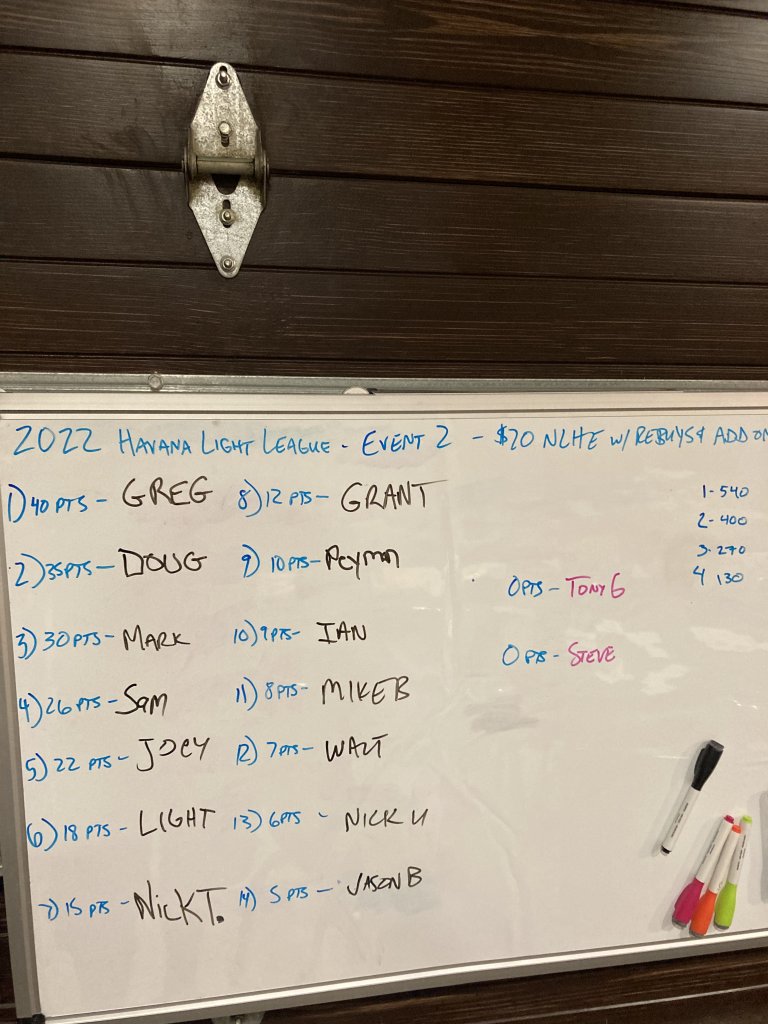 2022 HAVANA LIGHT LEAGUE - EVENT 2 - $20 NLHE W/ REBUYS & ADD ON
1) 40 PTS - GREG
2) 35 PTS - DOUG
3) 30 PTS - MARK
4) 26 PTS - Sam
5) 22 PTS - JOEY
6) 18 PTS - LIGHT
7) 15 PTS - NICK T.
8) 12 PTS - GRANT
9) 10 PTS - Peyman
10) 9 PTS - IAN
11) 8 PTS - MIKE B
12) 7 PTS - WALT
13) 6 PTS - NICK U
14) 5 PTS - JASON B
0 PTS - TONY G
0 PTS - STEVE
1 - 540
2 - 400
3 - 270
4 130